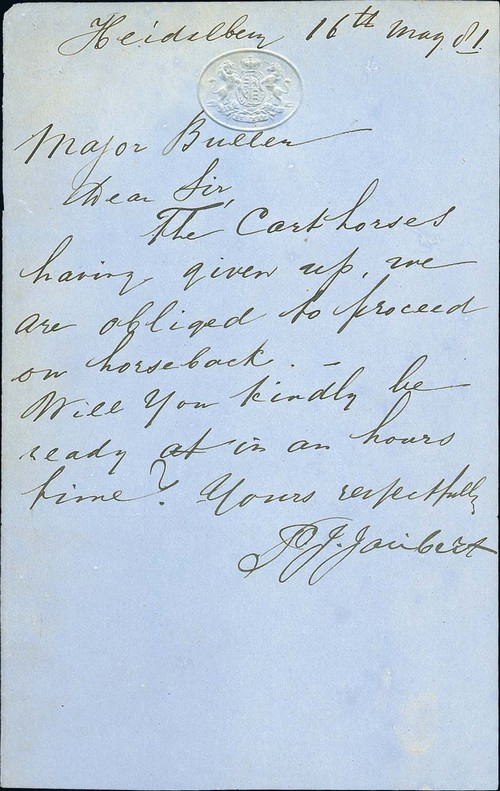 Heidelberg 16th May 81.
Major Buller
Dear Sir,
The Cart horses
having given up, we
are obliged to proceed
on horseback. –
Will You kindly be
ready at in an hours
time? Yours respectfully
P J. Joubert